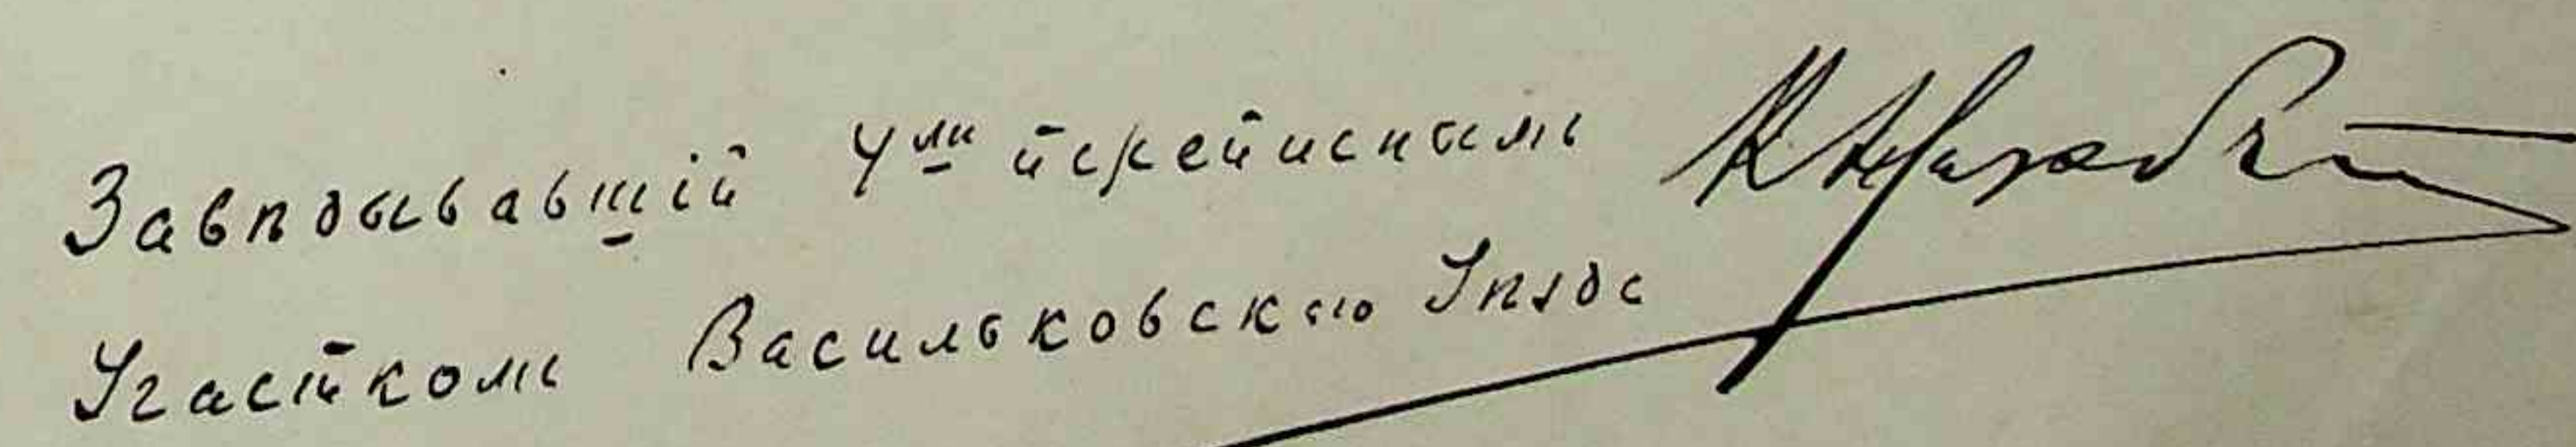 Завѣдывавшій 4ымъ переписнымъ
Участкомъ Васильковскаго Уѣзда